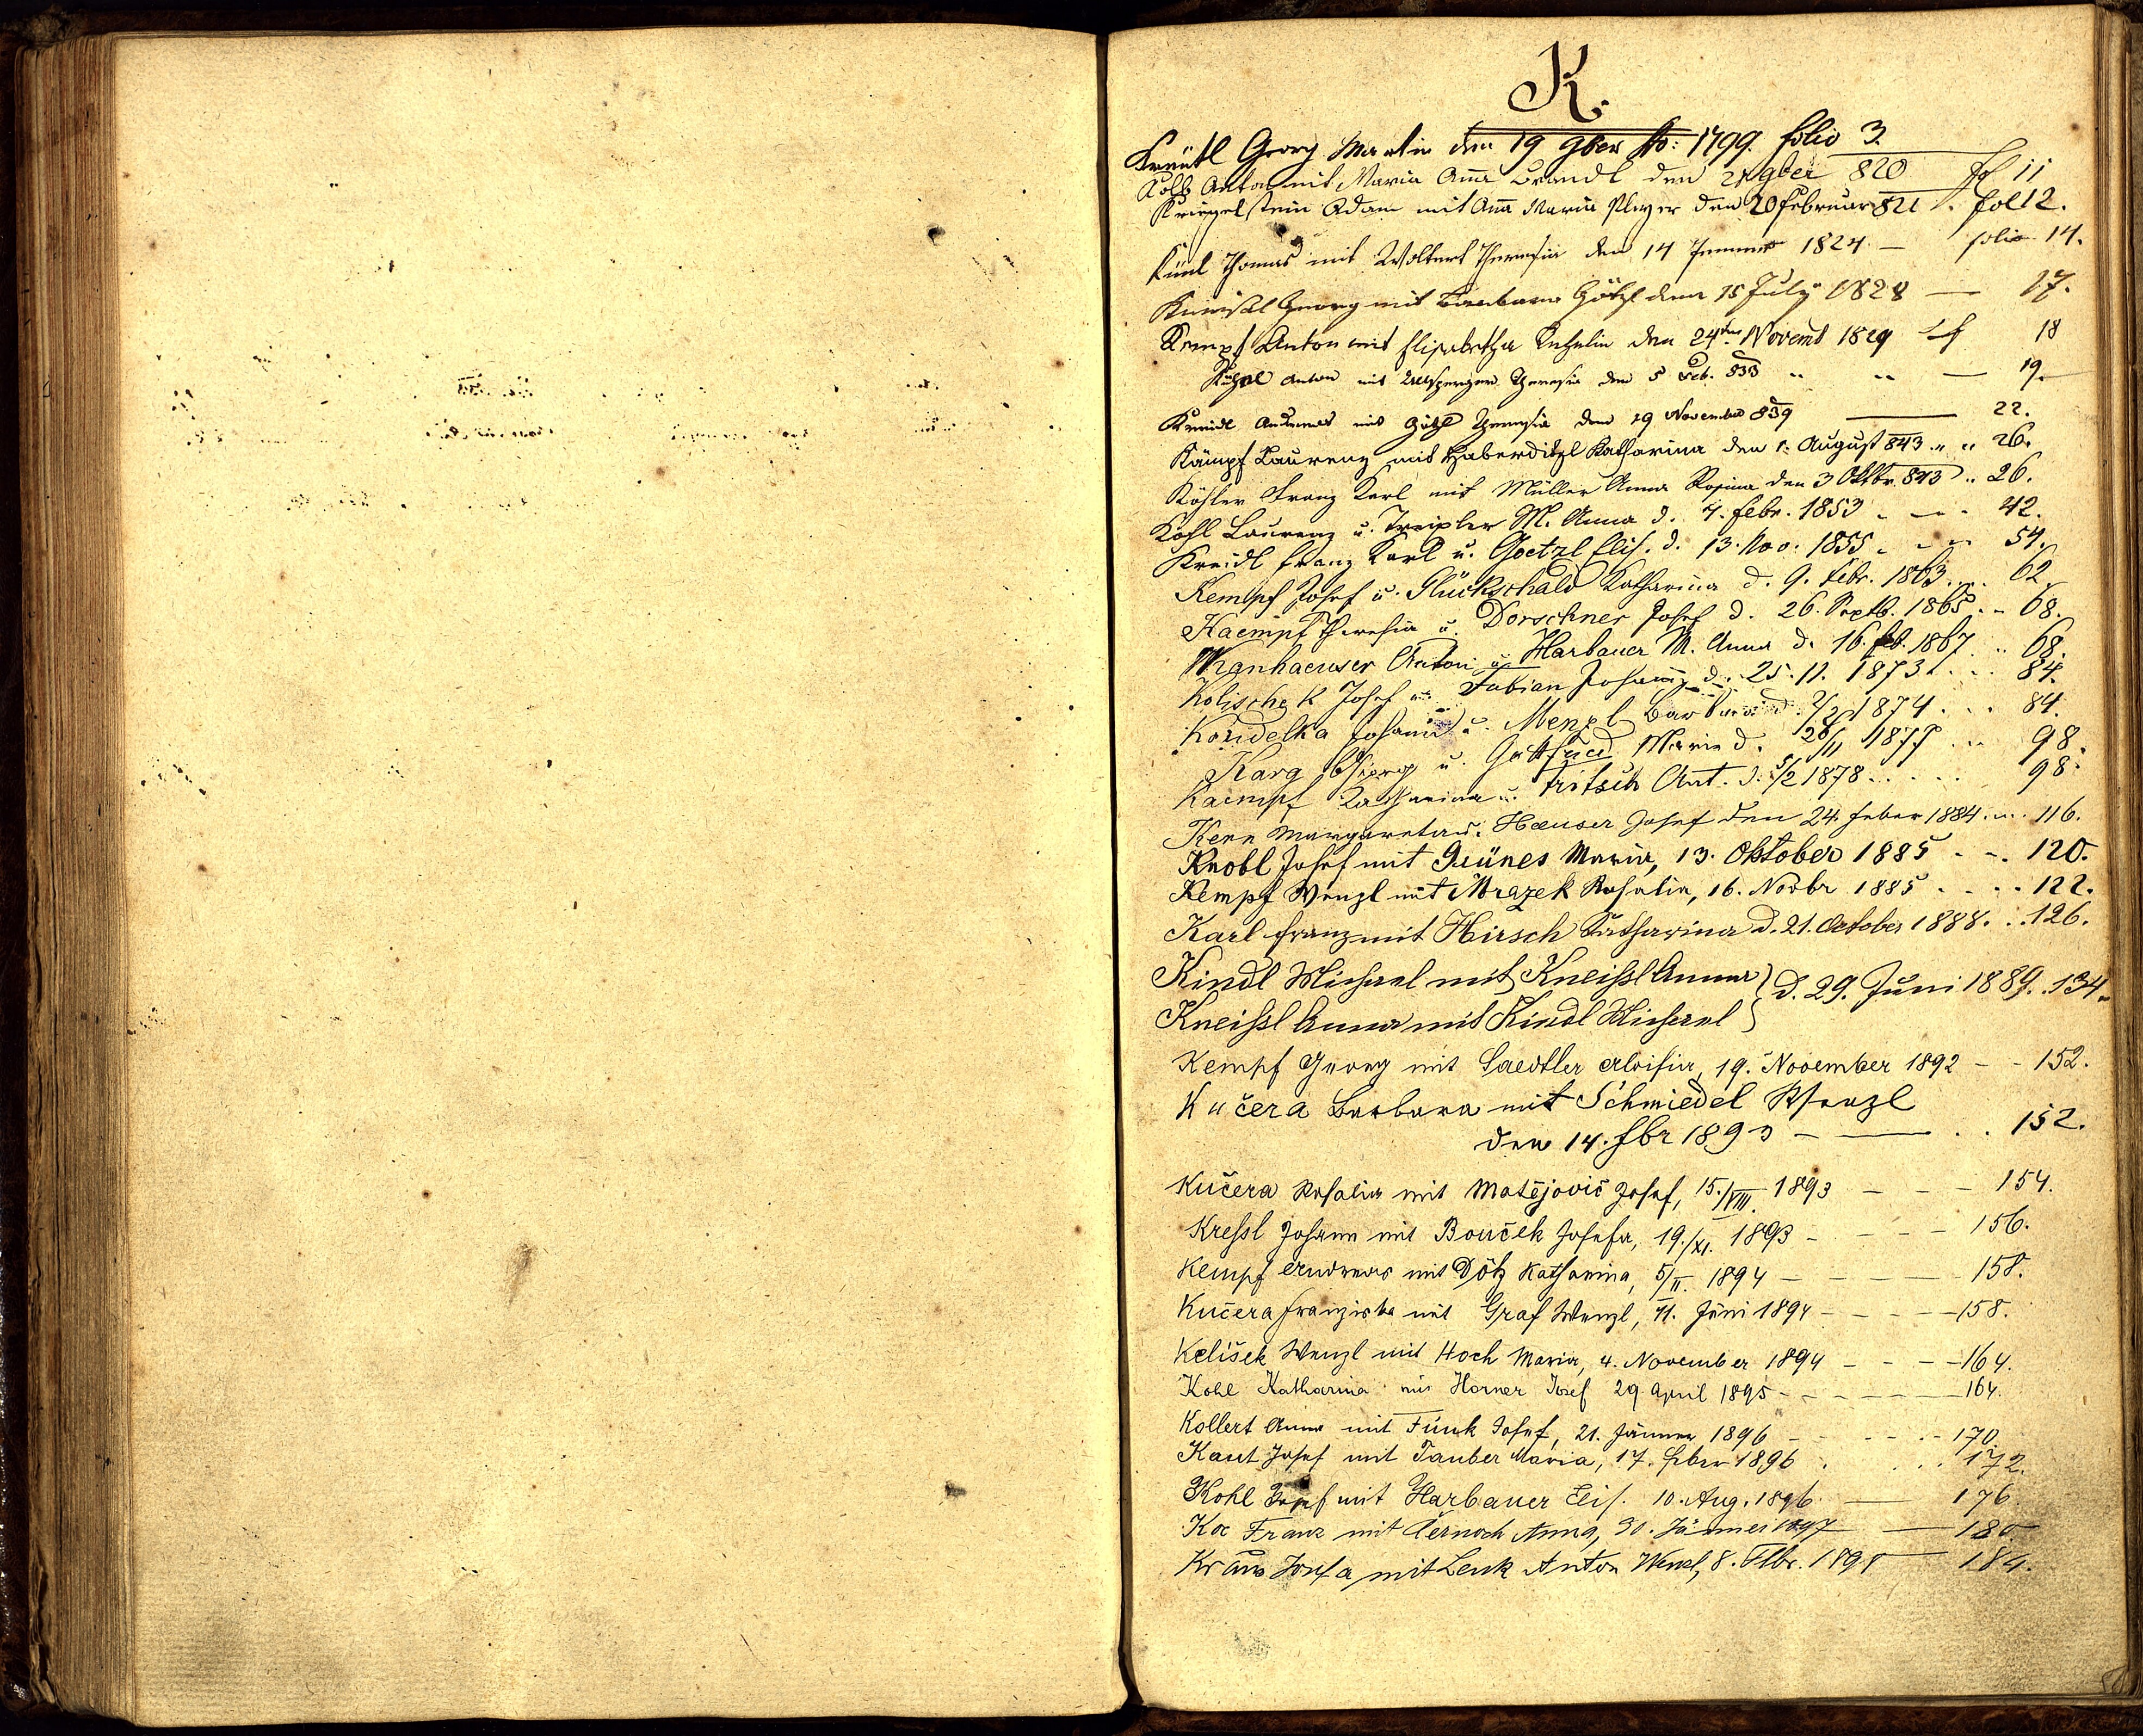 K.
Georg Martin den 19 9ber Ao: 1799. folio 3.
Kolb Anton mit Maria Anna Brandl den 9ber 820 fol 11
Kriegelstein Adam mit Anna Maria Player den 20 Februar 821. fol 12.
Thomas mit Theresia den 14 Jenner 1824 — folio 14.
Georg mit Barbara Götzl den 15 July 1828 — 17.
Kempf Anton mit Elisabetha den 24ten Novemb 1829 18
Anton mit Theresia den 5 Feb. 833 " " — 19.
Kreidl Andreas mit Götzl Theresia den 19 November 839 — 22.
Kämpf Laurenz mit Haberditzl Katharina den 1. August 843 " " 26.
Köhler Franz Karl mit Müller Anna Rosina den 3 Oktbr. 843 " 26.
Kohl Laurenz u. Treipler M. Anna d. 7. febr. 1853 . — . 42.
Kreidl Franz Karl u. Goetzl Elis. d. 13. Nov. 1855 . . . 54.
Kempf Josef u. Glückschald Katharina d. 9. Febr. 1863 . . 62.
Kaempf Theresia u. Dorschner Josef d. 26. Septb. 1865 . . 68.
Anton u. Harbauer M. Anna d. 16. feb. 1867 . . 68.
Kolischek Josef u. Fabian d. 25. 11. 1873 . . . 84.
Koudelka Johann u. Menzl Barbara d. 1874 . . . 84.
Karg u. Gottfried Marie d. 26/11 1877 . . 98.
Kaempf Katharina u. Fritsch Ant. d. 5/2 1878 . . . . . 98.
Kern Margareta u. Haeuser Josef den 24. Feber 1884 . . . 116.
Knobl Josef mit Grünes Maria, 13. Oktober 1885 . - . 120.
Kempf Wenzl mit Mrazek Rosalia, 16. Novbr 1885 . . . . 122.
Karl Franz mit Hirsch Katharina d. 21. October 1888. . . 126.
Kindl Michael mit Kneißl Anna } d. 29. Juni 1889. . 134.
Kneißl Anna mit Kindl Michael }
Kempf Georg mit Saedtler Aloisia, 19. November 1892 - - 152.
Kučera Barbara mit Schmiedel Wenzl
den 14. fbr 1893 — — . . 152.
Kučera Rosalia mit Matějovič Josef, 15./VIII. 1893 - - - 154.
Kreßl Johann mit Bouček Josefa, 19./XI. 1893 - - - - 156.
Kempf Andreas mit Dötz Katharina, 5/II. 1894 - - - - 158.
Kučera Franziska mit Graf Wenzl, 11. Juni 1894 - - - - 158.
Kelišek Wenzl mit Hoch Maria, 4. November 1894 - - - - 164.
Kohl Katharina mit Horner Josef 29 April 1895 - - - - - 164.
Kollert Anna mit Funk Josef, 21. Jänner 1896 - - - - - 170.
Kaut Josef mit Tauber Maria, 17. feber 1896 . . . . 172.
Kohl Josef mit Harbauer Elis. 10. Aug. 1896. — 176.
Koc Franz mit Černoch Anna, 30. Jänner 1897 — 180
Kraus Josefa mit Lenk Anton Wenzl, 8. Feber. 1898 — 184.